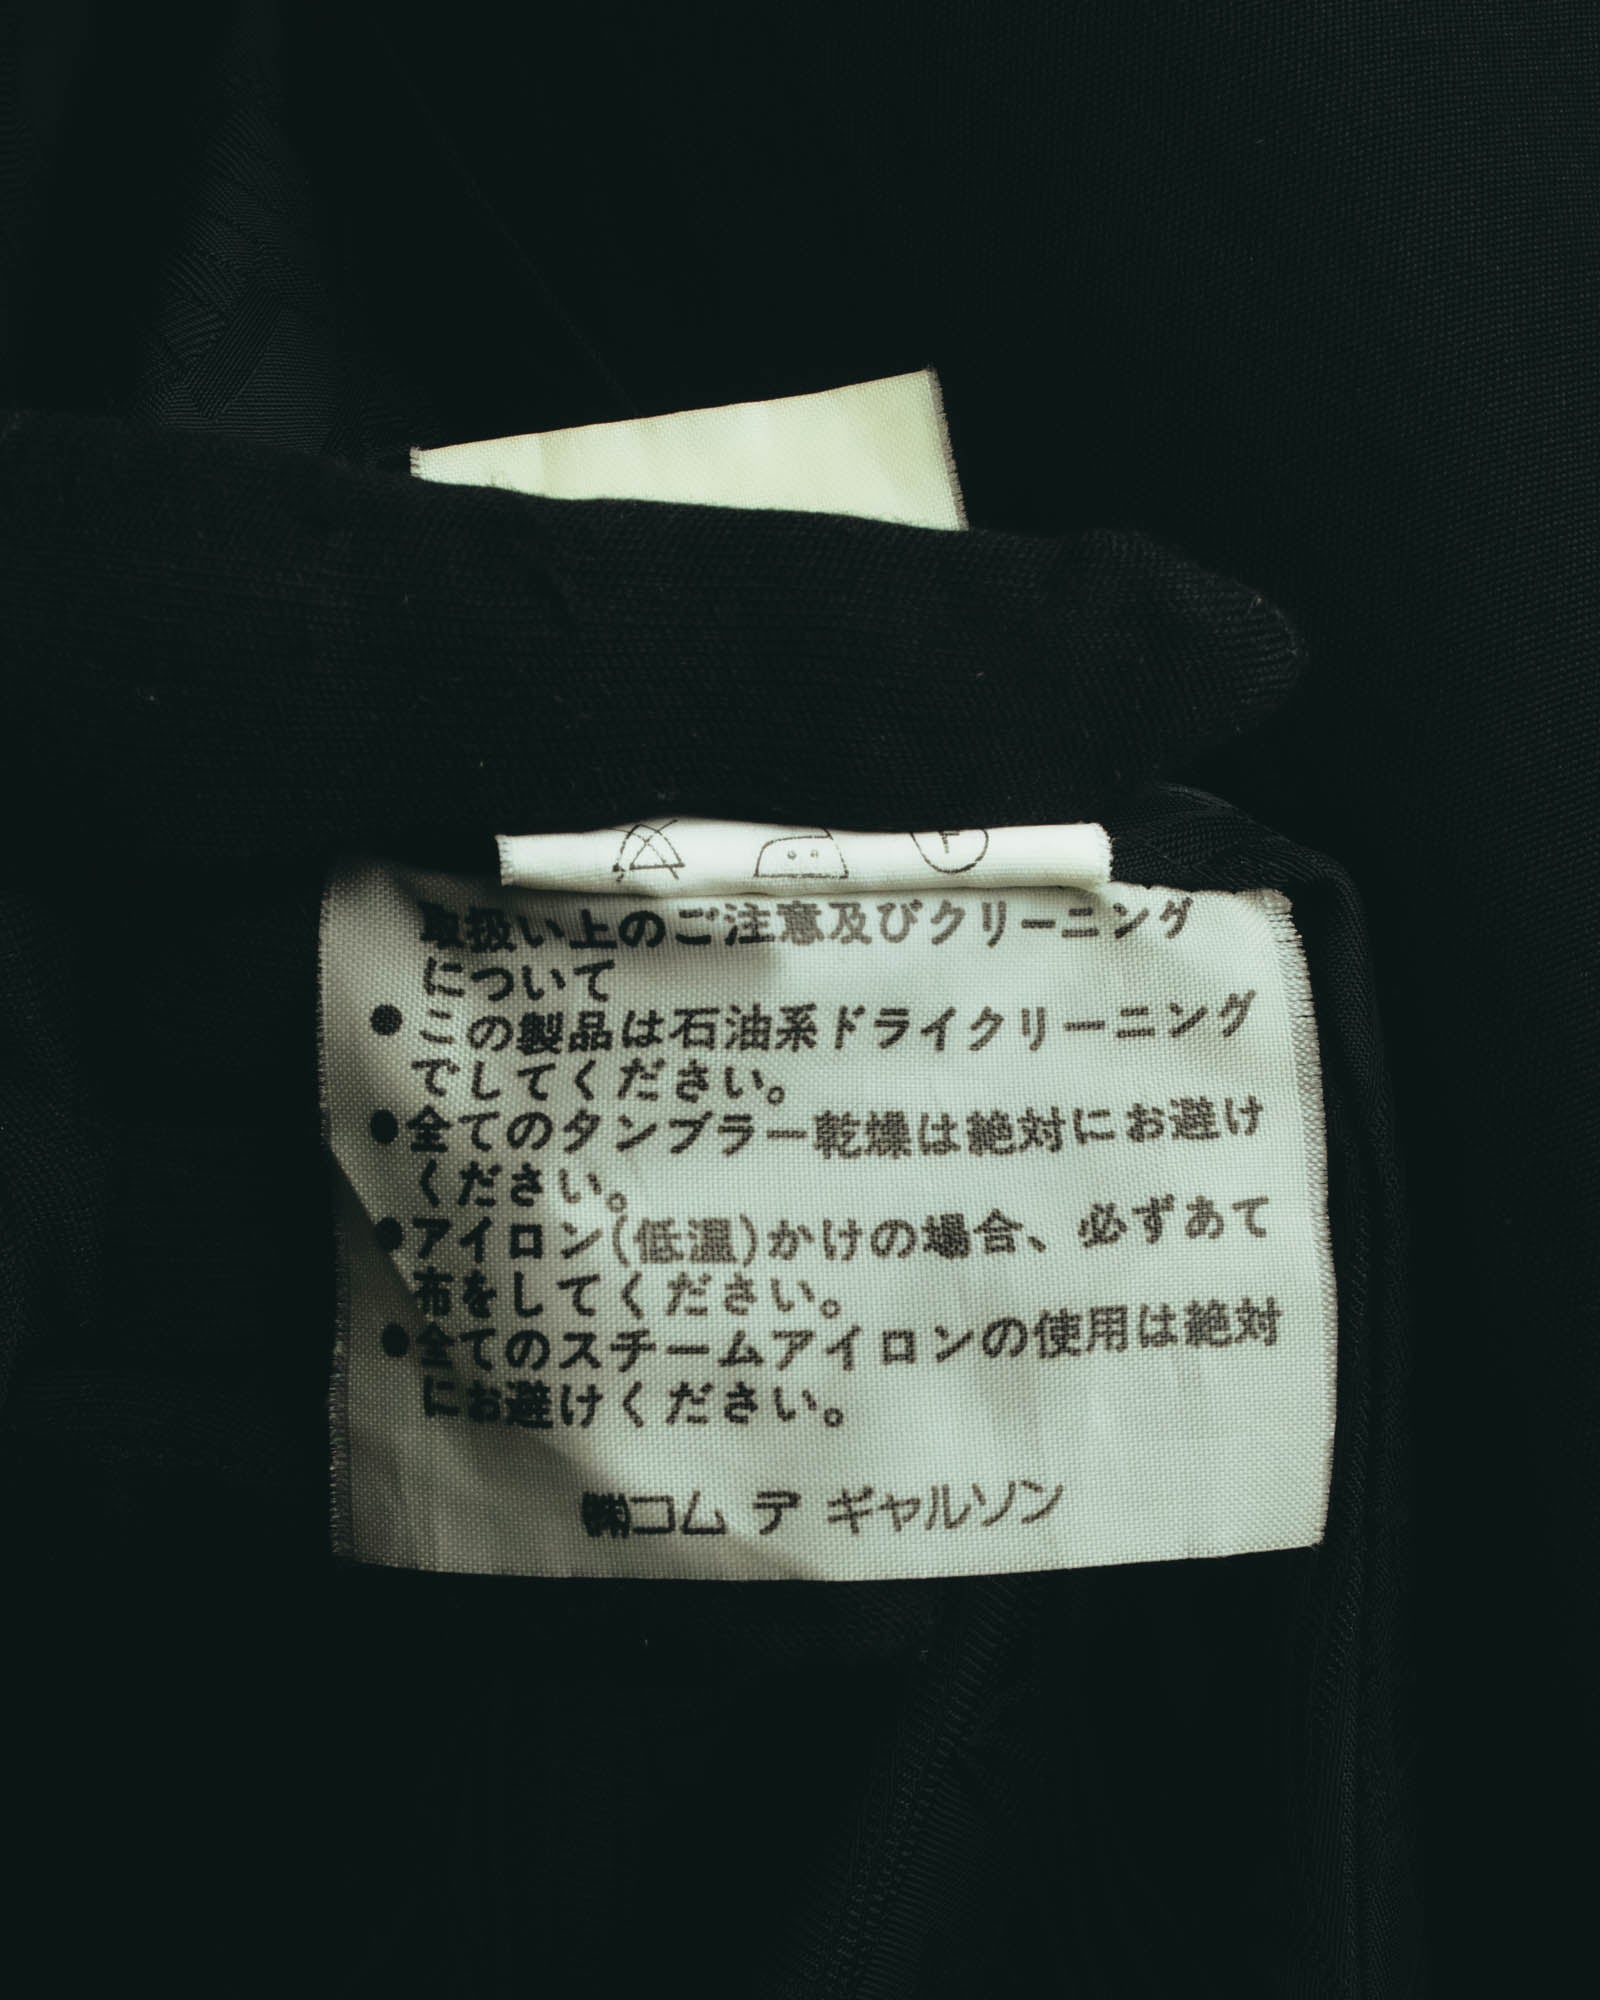 取扱い上のご注意及びクリーニング
について
●この製品は石油系ドライクリーニング
でしてください。
●全てのタンブラー乾燥は絶対にお避け
ください。
●アイロン(低温)かけの場合、必ずあて
布をしてください。
●全てのスチームアイロンの使用は絶対
にお避けください。
㈱コム デ ギャルソン